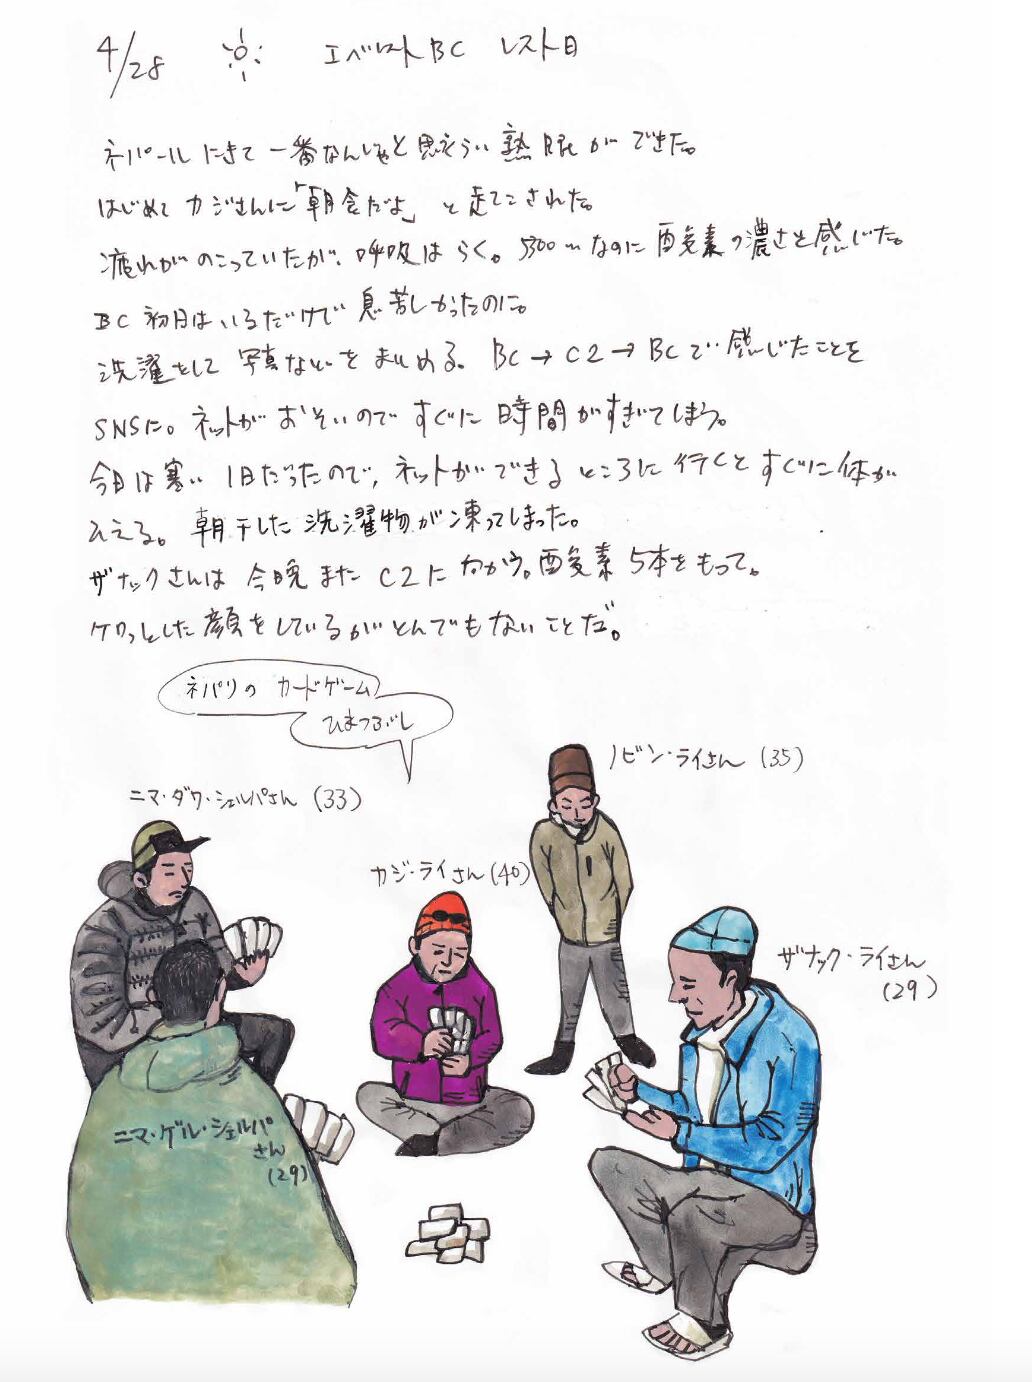 4/28 エベレストBC レスト日
ネパールにきて一番なんじゃと思えらい熟眠ができた。
はじめてカジさんに「朝食だよ」と起こされた。
疲れがのこっていたが、呼吸はらく。5300mなのに酸素の濃さを感じた。
BC初日はいるだけで息苦しかったのに。
洗濯をして写真などをまとめる。BC→C2→BCで感じたことを
SNSに。ネットがおそいのですぐに時間がすぎてしまう。
今日は寒い1日だったので、ネットができるところに行くとすぐに体が
ひえる。朝干した洗濯物が凍ってしまった。
ザナックさんは今晩またC2に向かう。酸素5本をもって。
ケロっとした顔をしているがとんでもないことだ。
ネパリのカードゲーム
ひまつぶし
ノビン・ライさん(35)
ニマ・ダワ・シェルパさん(33)
カジ・ライさん(40)
ザナック・ライさん
(29)
ニマ・ゲル・シェルパ
さん
(29)